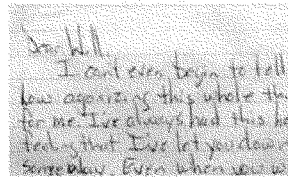 Dear Will,
I can't even begin to tell
how agonizing this whole
for me. I've always had this
feeling that I've let you down
somehow. Even when you